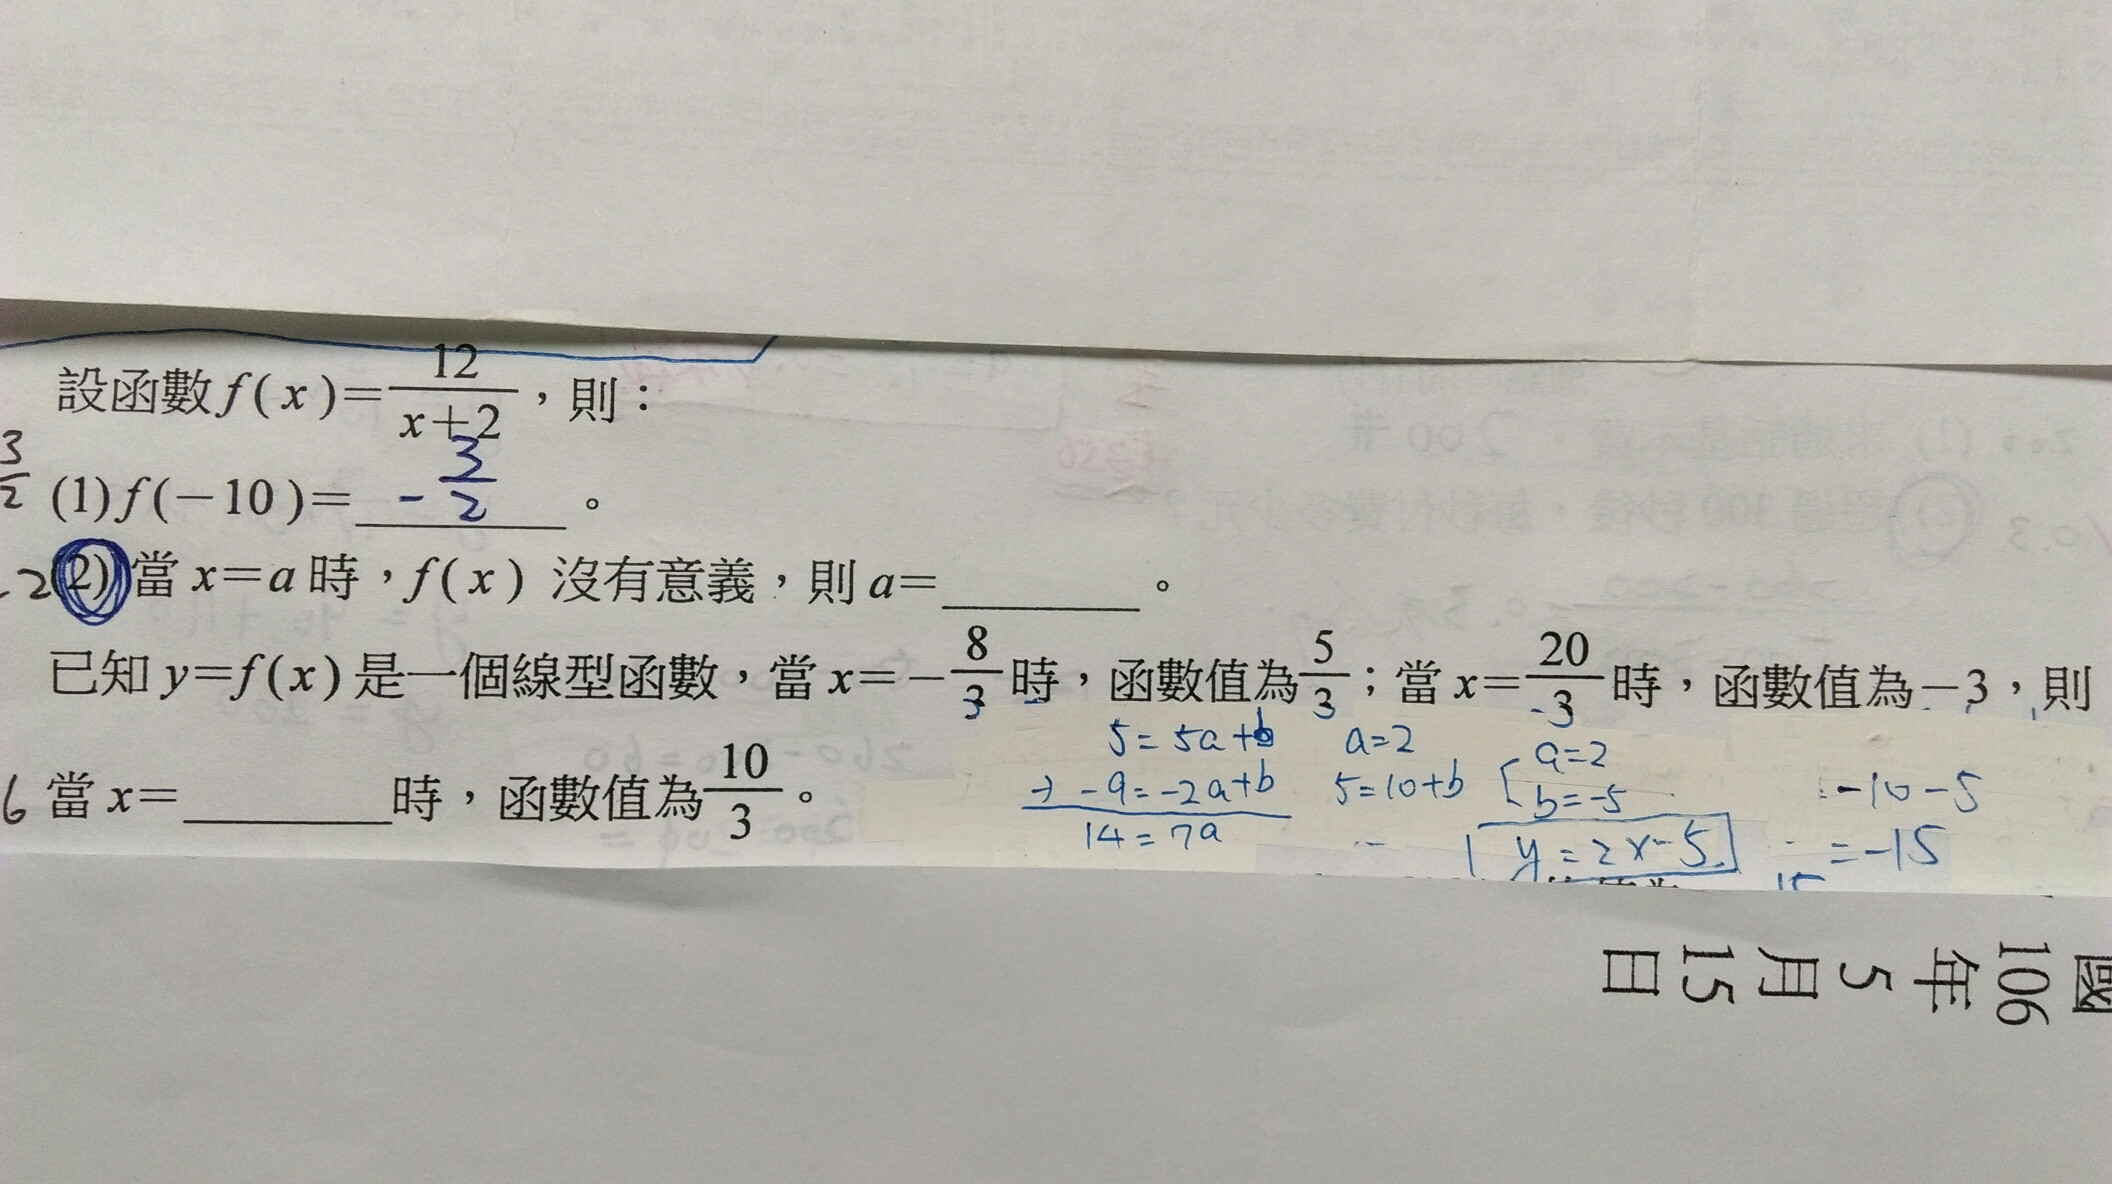 設函數 f(x)=12/(x+2),則:
3/2 (1) f(-10)= -3/2 。
-2 (2) 當 x=a 時,f(x) 沒有意義,則 a=________。
已知 y=f(x) 是一個線型函數,當 x=-8/3 時,函數值為 5/3;當 x=20/3 時,函數值為-3,則
6 當 x=________時,函數值為 10/3。
5=5a+b
-9=-2a+b
14=7a
a=2
5=10+b
a=2
b=-5
y=2x-5
-10-5
=-15
15
國
106
年
5
月
15
日